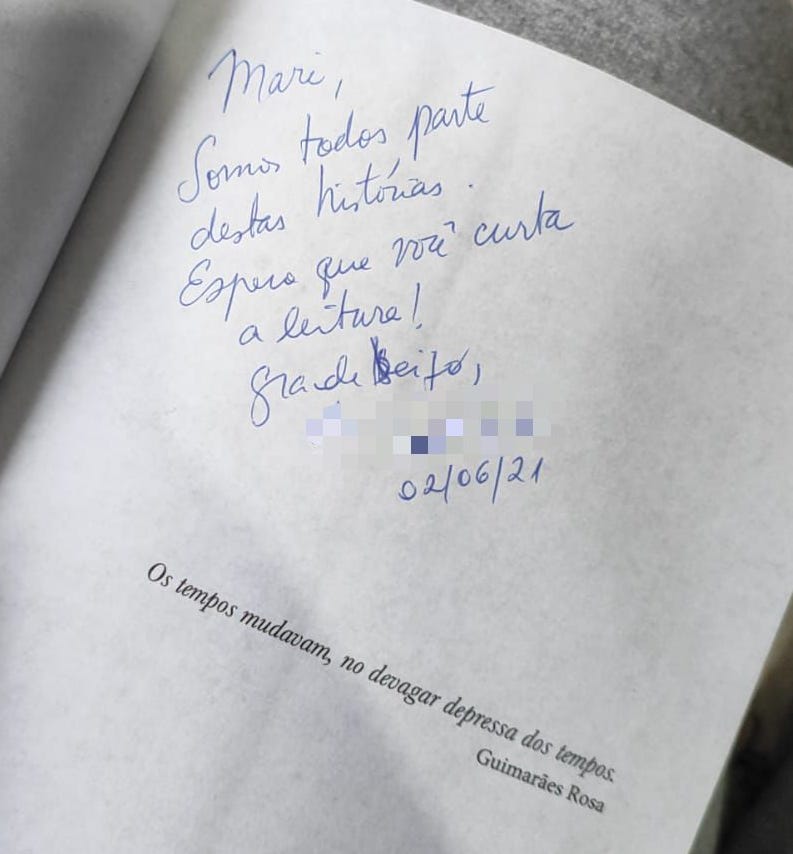 Mari,
Somos todos parte
destas histórias.
Espero que você curta
a leitura!
Grande beijo,
02/06/21
Os tempos mudavam, no devagar depressa dos tempos.
Guimarães Rosa